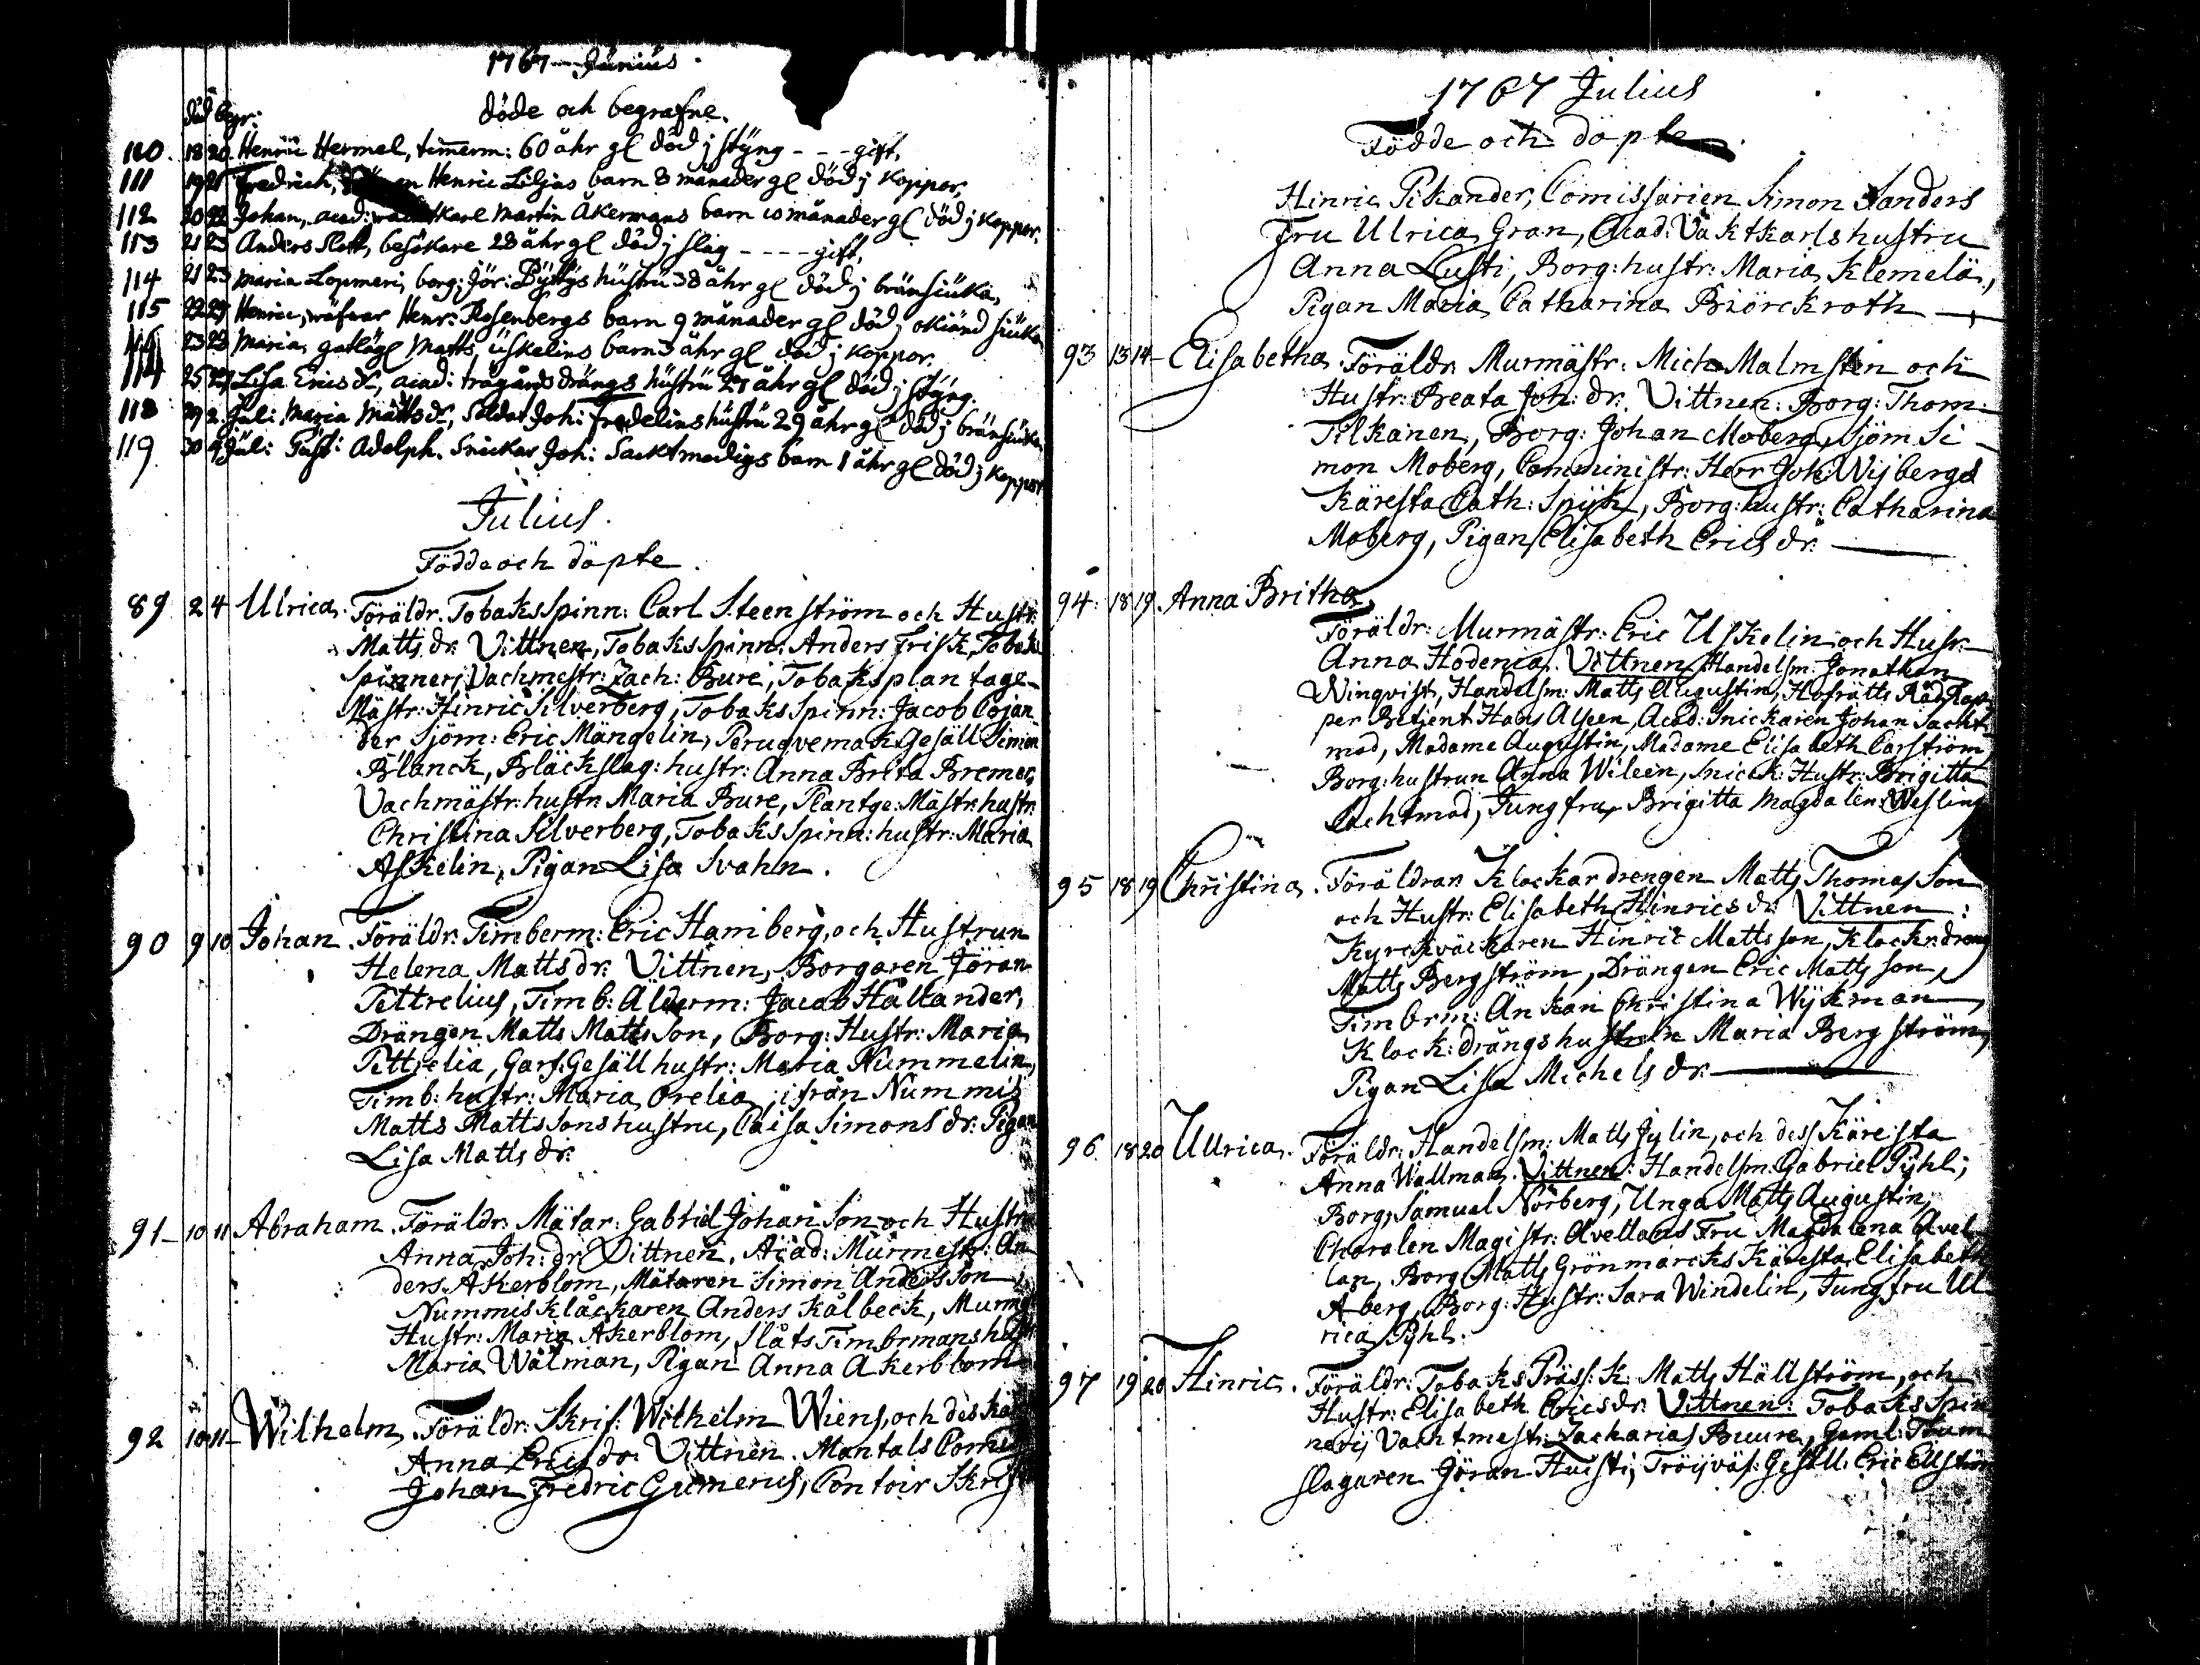 1767 Junius
döde och begrafne.
död begr:
110. 18 20 Henric Hermel, timerm: 60 åhr gl död j styng - - - gift,
111 19 21 Fredrich, Henric Liljas barn 8 månader gl död j koppor,
112 20 22 Johan, acad: Martin Åkermans barn 10 månader gl död j koppor.
113 21 23 Anders Slott, besökare 28 åhr gl död j slag - - - - gift,
114 21 23 Maria Lopmeri, borg: Jör: hustru 38 åhr gl död j bränsiuka,
115 22 23 Henric, Henr: Rosenbergs barn 9 månader gl död j okiänd siuka
116 23 23 Maria, Matts, Uskelins barn 3 åhr gl död j koppor.
117 25 27 Lisa Ericsdr, acad: trägårds drängs hustru 27 åhr gl död j styng.
118 29 2 Jul: Maria Mattsdr, Soldat Joh: Fredelins hustru 29 åhr gl död j bränsiuka
119 30 Jul: Gust: Adolph. Snickar Joh: Sacktmodigs barn 1 åhr gl död j koppor
Julius.
Födde och döpte.
89 2 4 Ulrica. Föräldr. Tobaks Spinn: Carl Steenström och Hustr:
Matts dr. Vittnen, Tobaks Spinn: Anders Frisk, Tobaks
Spinnerj Vachmestr: Zach: Bure, Tobaks plantage
Mästr: Hinric Silverberg, Tobaks Spinn: Jacob Cojan
der Sjöm: Eric Mängelin, Peruqvemak. Gesäll Simon
Blanck, Bläckslag: hustr: Anna Brita Bremer,
Vachmästr: hustr: Maria Bure, Plantge: Mästr: hustr:
Christina Silverberg, Tobaks Spinn: hustr: Maria
Askelin, Pigan Lisa Svahn.
90 9 10 Johan. Föräldr: Timberm: Eric Hamberg, och Hustrun
Helena Matts dr: Vittnen, Borgaren Jöran
Pettrelius, Timb: Ålderm: Jacob Hållander,
Drängen Matts Matts Son, Borg: Hustr: Maria
Pettrelia, Garf: Gesäll hustr: Maria Nummelin,
Timb: hustr: Maria Orelia, ifrån Nummis
Matts Matts Sons hustru, Caisa Simons dr: Pigan
Lisa Matts dr:
91 10 11 Abraham. Föräldr: Mätar: Gabriel Johan Son och Hustru
Anna Joh: dr: Vittnen. Acad: Murmestr: An
ders Åkerblom, Mätaren Simon Anders Son
Nummis klåckaren Anders Kålbeck, Murmg
Hustr: Maria Åkerblom, Slåts Timbrmans hustr
Maria Wälman, Pigan Anna Åkerblom
92 10 11 Wilhelm. Föräldr: Skrif: Wilhelm Wiens, och des kä
Anna Erics dr: Vittnen. Mantals Comis
Johan Fredric Gumerus, Contoir Skrif
1767 Julius
Födde och döpte.
Hinric Pikander, Comissarien Simon Sanders
Fru Ulrica Gran, Acad: Vaktkarls hustru
Anna Lusti, Borg: hustr: Maria Klemelä,
Pigan Maria Catharina Biörckroth
93 13 14 Elisabetha. Föräldr: Murmästr: Mich: Malmsten och
Hustr: Beata Joh: dr: Vittnen: Borg: Thom:
Pilkanen, Borg: Johan Moberg, Sjöm Si
mon Moberg, Comministr: Herr Joh: Wijbergs
Käresta Cath: Spijk, Borg: hustr: Catharina
Moberg, Pigan Elisabeth Erics dr.
94 18 19 Anna Britha.
Föräldr: Murmästr: Eric Uskelin och Hustr:
Anna Hodenia. Vittnen, Handelsm: Jonathan
Winqvist, Handelsm: Matts Augustin, Hofrätts
per Betjent Hans Alfeen, Acad: Snickaren Johan Sacht
mod, Madame Augustin, Madame Elisabeth Carström
Borg: hustrun Anna Wileen, Snick: Hustr: Brigitta
Sachtmod, Jungfru Brigitta Magdalen: Wesling
95 18 19 Christina. Föräldrar Klockar drengen Matts Thomas Son
och Hustr: Elisabeth Hinrics dr: Vittnen:
Kyrckväckaren Hinric Matts Son, Klockr: dreng
Matts Bergström, Drängen Eric Matts Son,
Timbrm: Änkan Christina Wijkman,
Klock: drängs hustrun Maria Bergström,
Pigan Lisa Michels dr.
96 18 20 Ullrica. Föräldr: Handelsm: Matts Jylin, och dess Käresta
Anna Wallman. Vittnen: Handelsm: Gabriel Pyhl,
Borg: Samuel Nörberg, Unga Matts Augustin,
Choralen Magistr: Avellans Fru Magdalena Avel
lan, Borg: Matts Grönmarcks Käresta Elisabeth
Åberg, Borg: Hustr: Sara Windelin, Jungfru Ul
rica Pyhl.
97 19 20 Hinric. Föräldr: Tobaks Präss: K: Matts Hällström, och
Hustr: Elisabeth Erics dr: Vittnen: Tobaks Spin
nerij Vachtmestr: Zacharias Buure, Gaml: Trum
slagaren Jöran Husti, Tröijväf: Gesäll: Eric Ellström